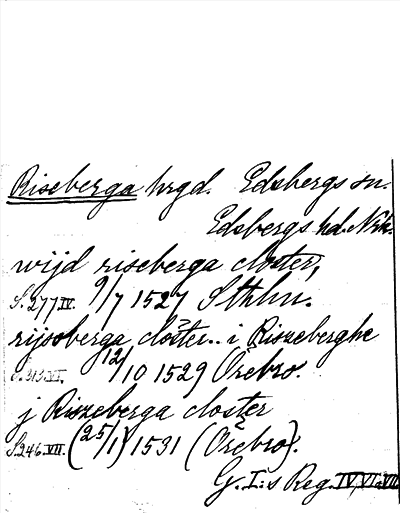 Riseberga hrgd. Edsbergs sn.
Edsbergs hd. Nrk.
wijd riseberga closter,
S. 277 IV. 9/7 1527 Sthlm.
rijseberga closter.. i Riszeberghe
S. 313. VI. 12/10 1529 Örebro.
j Riszeberga closter
S. 246. VII. (25/1) 1531 (Örebro).
G. I:s Reg. IV, VI. VII